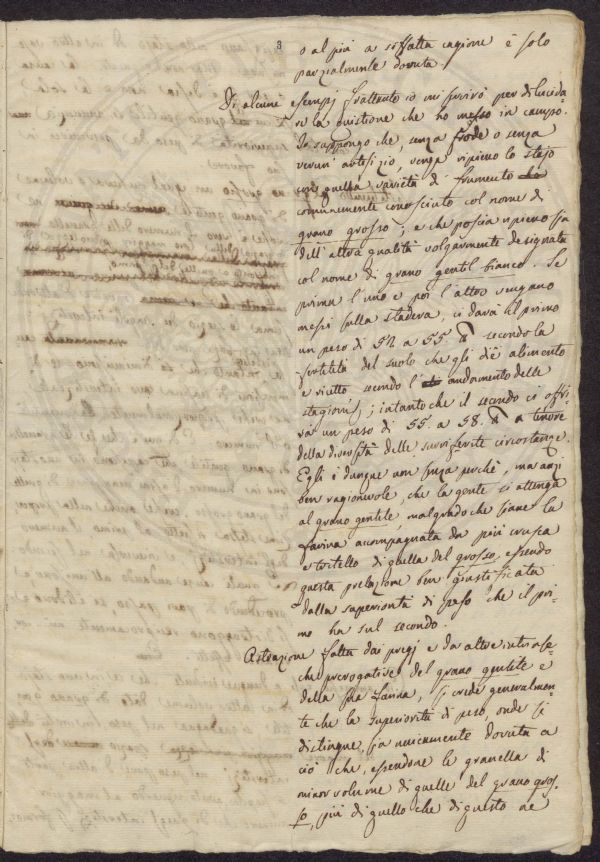 3
o al più a siffatta cagione è solo
parzialmente dovuta.
Di alcuni esempj frattanto io mi servirò per dilucida-
re la quistione che ho messo in campo.
Io suppongo che, senza frode o senza
verun' artifizio, venga ripieno lo stajo
con quella varietà di frumento
comunemente conosciuto col nome di
grano grosso; e che poscia ripieno sia
dell' altra qualità volgarmente designata
col nome di grano gentil bianco. Se
prima l'uno e poi l'altro vengano
messi sulla stadera, ci darà il primo
un peso di 52 a 55 secondo la
fertilità del suolo che gli diè alimento
e ricetto secondo l' andamento delle
stagioni; intanto che il secondo ci offri-
rà un peso di 55 a 58 a tenore
della diversità delle surriferite circostanze.
Egli è dunque non senza perchè, ma anzi
ben ragionevole, che la gente si attenga
al grano gentile, malgrado che siane la
farina accompagnata da più crusca
e tritello di quella del grosso, essendo
questa prelazione ben giustificata
dalla superiorità di peso che il pri-
mo ha sul secondo.
Astrazione fatta dai pregj e da altre intrinse-
che prerogative del grano gentile e
della sua farina, si crede generalmen-
te che la superiorità di peso, onde si
distingue, sia unicamente dovuta a
ciò che, essendone le granella di
minor volume di quelle del grano gros-
so, più di quello che di questo ne